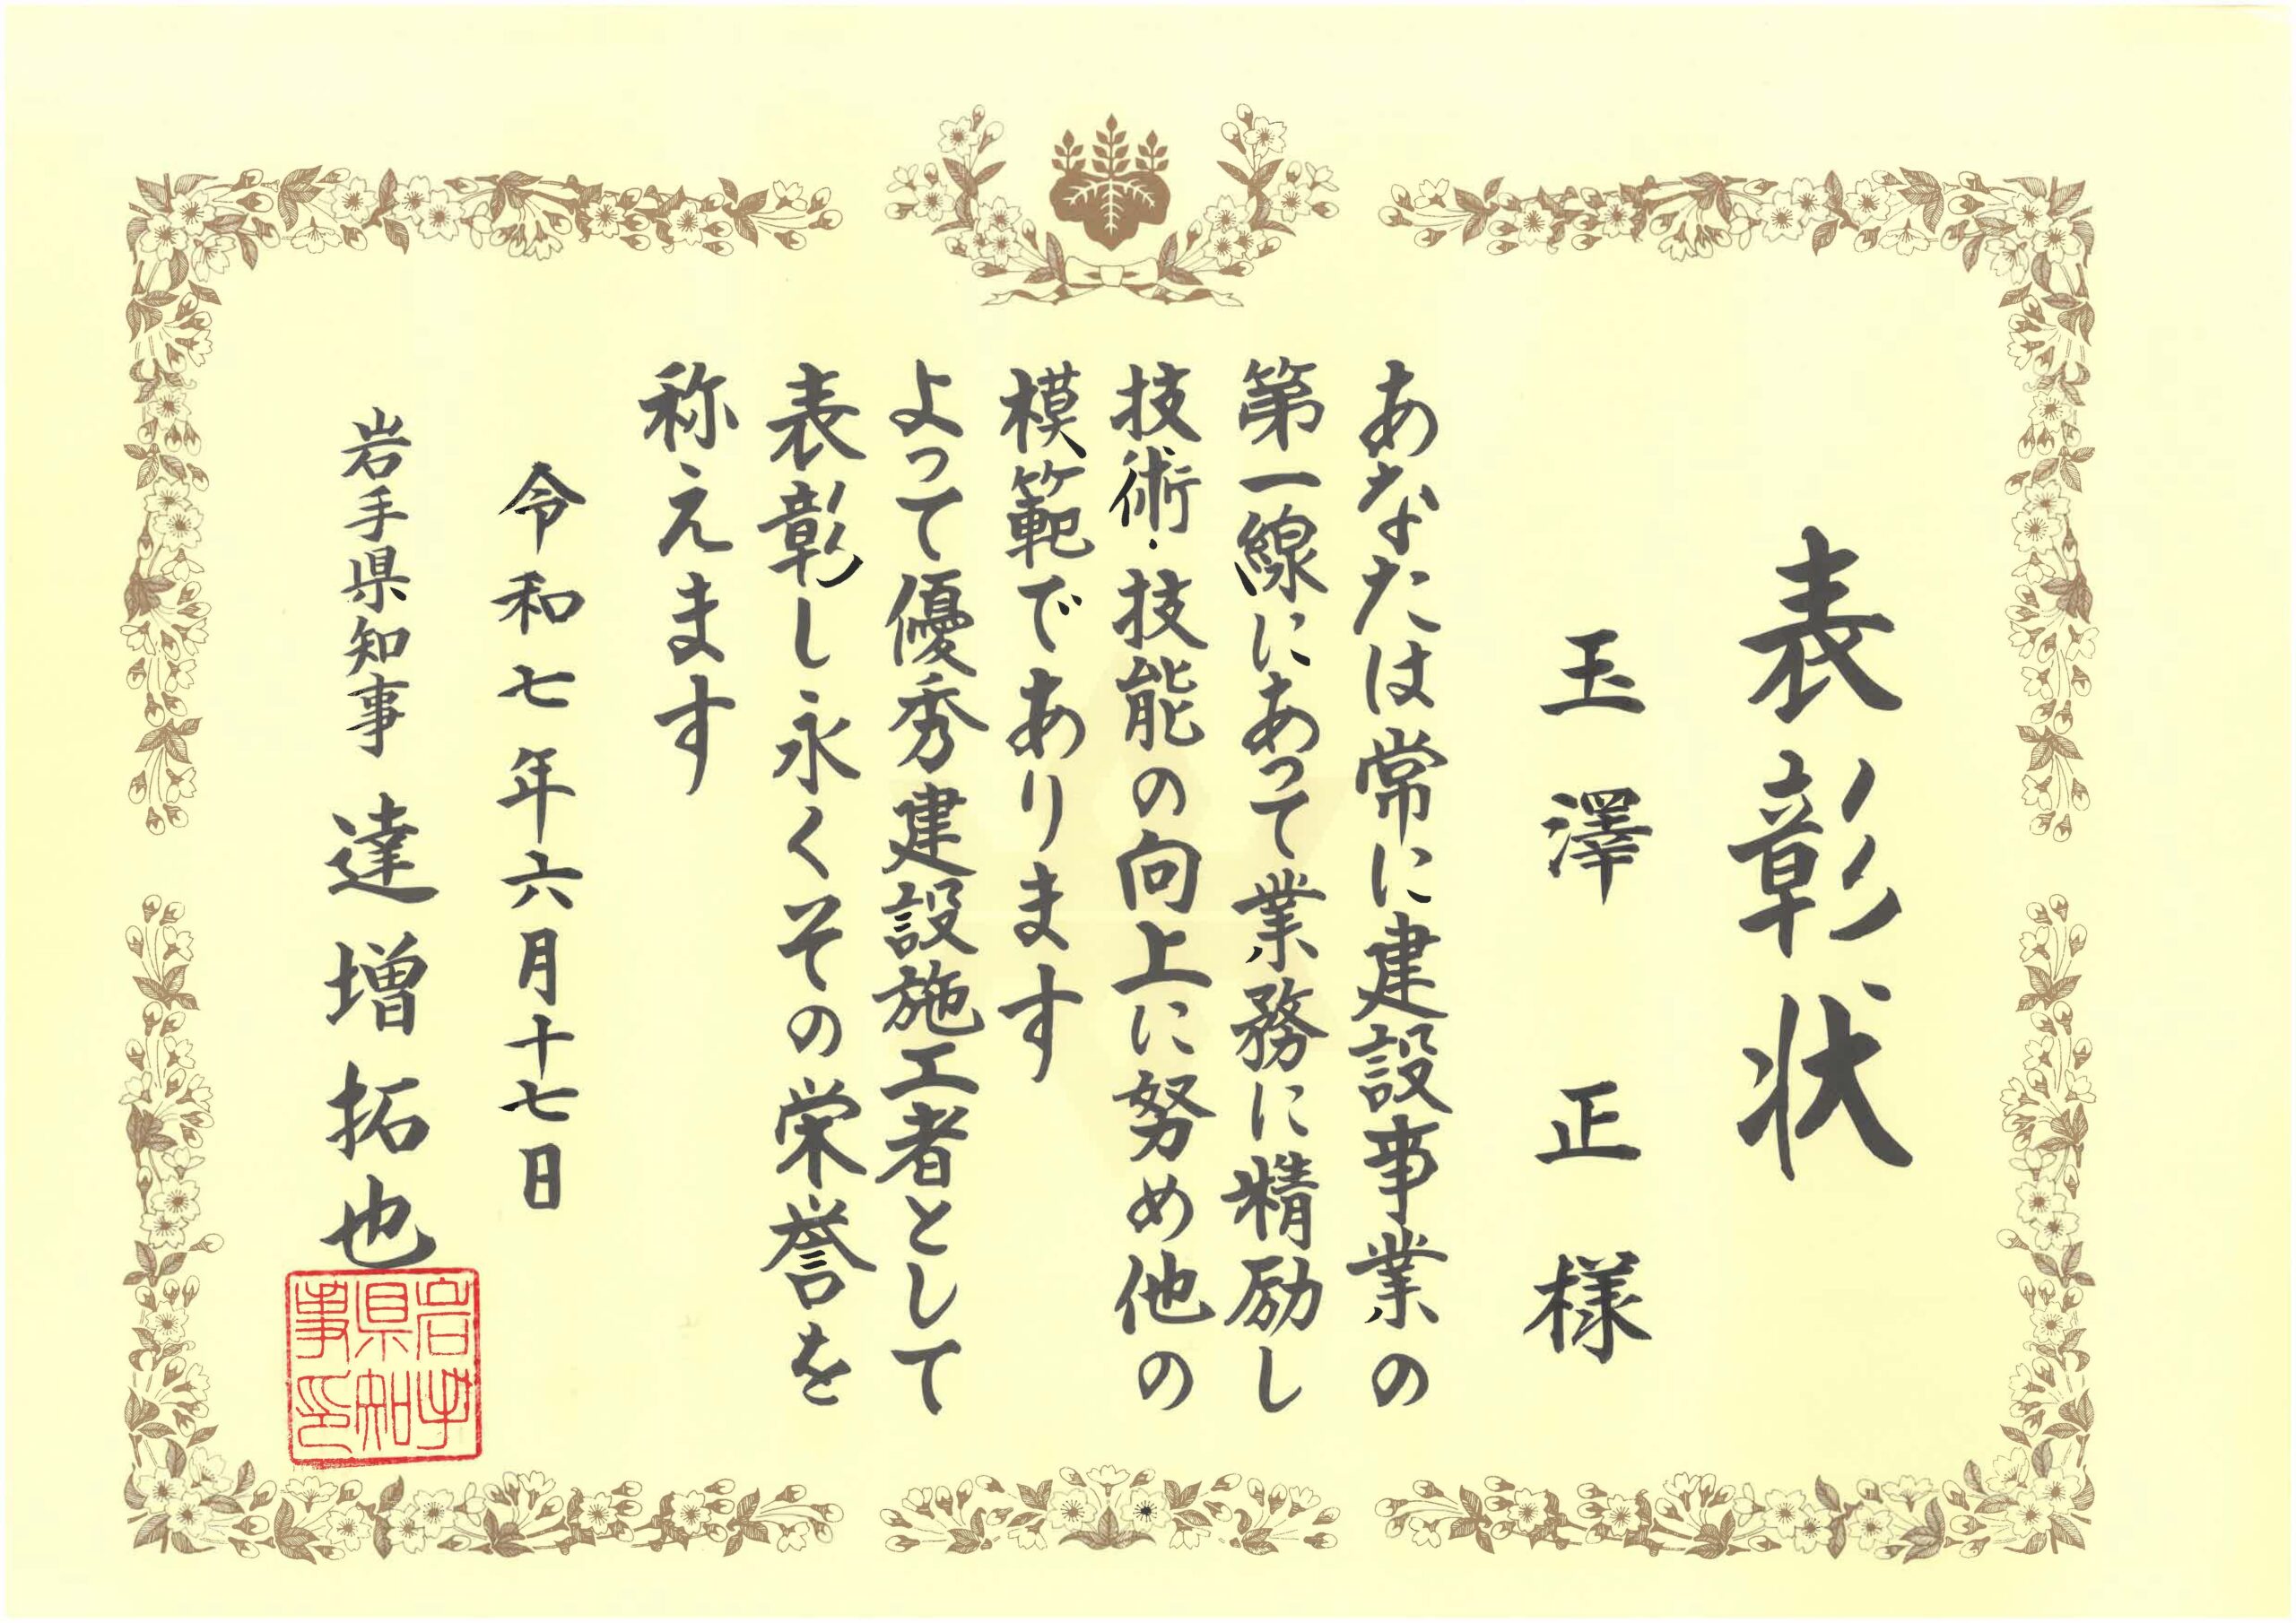 表彰状
玉澤 正 様
あなたは常に建設事業の
第一線にあって業務に精励し
技術・技能の向上に努め他の
模範であります
よって優秀建設施工者として
表彰し永くその栄誉を
称えます
令和七年六月十七日
岩手県知事 達増拓也
岩手
県知
事印